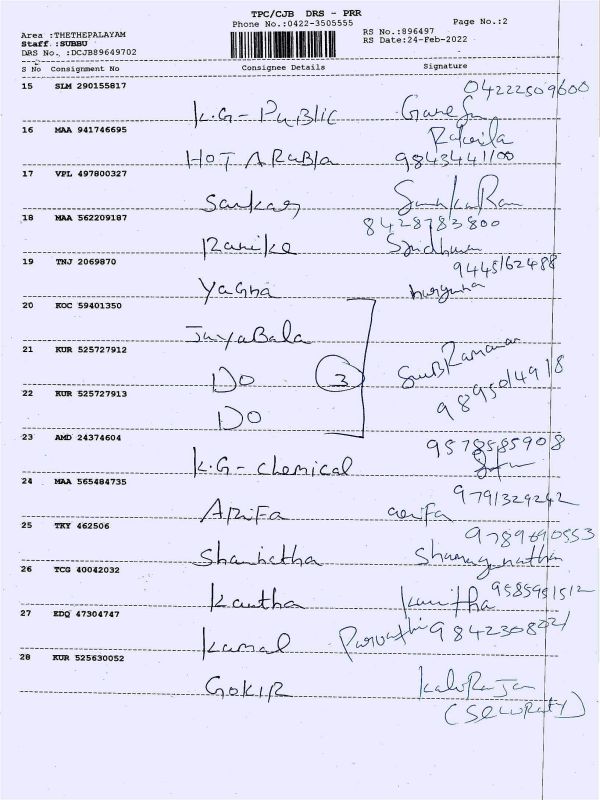 TPC/CJB DRS - PRR
Phone No.:0422-3505555
Page No.:2
Area :THETHEPALAYAM
RS No.:896497
Staff :SUBBU
RS Date:24-Feb-2022
DRS No. :DCJB89649702
S No Consignment No Consignee Details Signature
15 SLM 290155817
04222509600
K.G- PuBLIC Ganesh
16 MAA 941746695
HOT ARaBIa 9843441100
17 VPL 497800327
Sankar
18 MAA 562209187
8428783800
Ranike Sindhuu
19 TNJ 2069870
9445162488
YaGna
20 KOC 59401350
JayaBala
21 KUR 525727912
Do 3 SuBRamanan
22 KUR 525727913
9895014918
Do
23 AMD 24374604
9578585908
K.G- chemical
24 MAA 565484735
9791329242
ARIFa aarifa
25 TKY 462506
9789690553
Shanmugnathan
26 TCG 40042032
9585951512
Kavitha Kavitha
27 EDQ 47304747
Kamal Parvathi 9842308221
28 KUR 525630052
GOKIR KaluRaJan
(SecuRity)